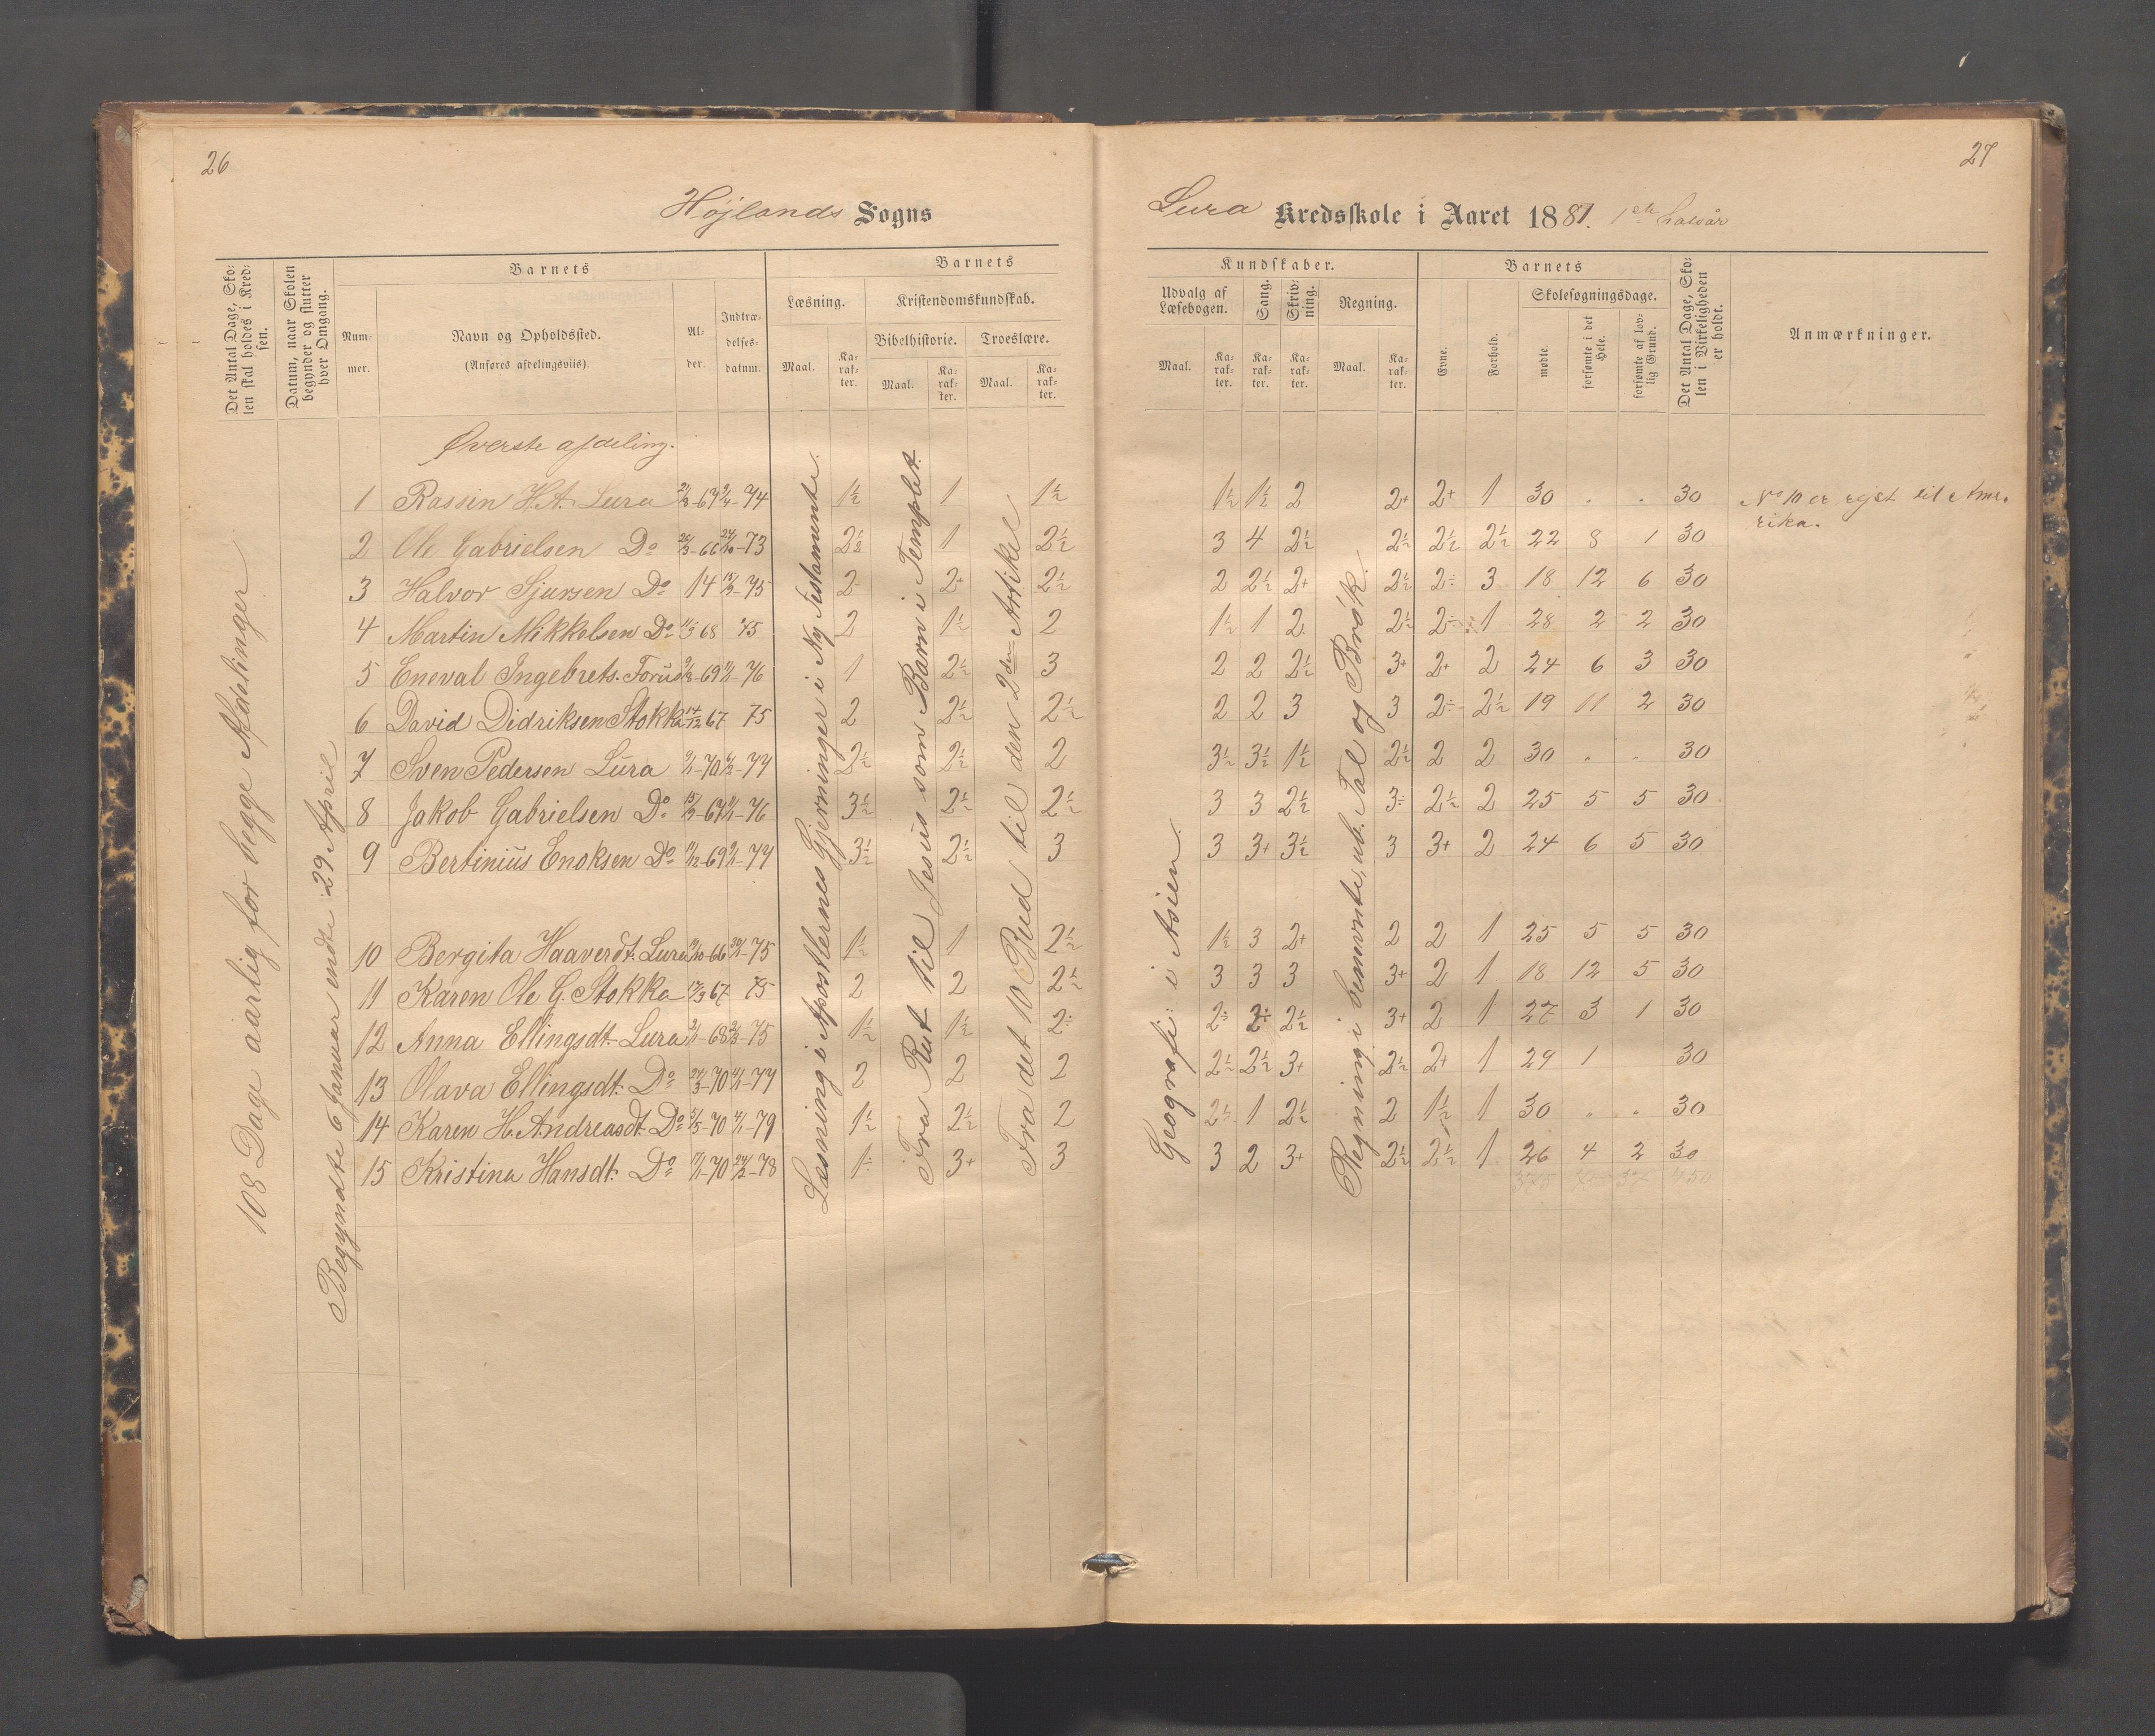 26
Højlands Sogns
Det Antal Dage, Sko-
len skal holdes i Kred-
sen.
Datum, naar Skolen
begynder og slutter
hver Omgang.
Barnets
Num-
mer.
Navn og Opholdssted.
(Anføres afdelingsviis)
Al-
der.
Indtræ-
delses-
datum.
Barnets
Læsning.
Maal.
Ka-
rak-
ter.
Kristendomskundskab.
Bibelhistorie.
Troeslære.
Maal.
Ka-
rak-
ter.
Maal.
Ka-
rak-
ter.
108 Dage aarlig for begge Afdelinger
Begyndte 6 Januar endte 29 April
Øverste afdeling.
1 Rassin H.A. Lura 74 1½ 1 1½
2 Ole Gabrielsen Do 73 2½ 1 2½
3 Halvor Sjursen Do 14 75 2 2+ 2½
4 Martin Mikkelsen Do 68 75 2 1½ 2
5 Eneval Ingebrets. Forus 69 76 1 2½ 3
6 David Didriksen Stokka 14/12 67 75 2 2½ 2½
7 Sven Pedersen Lura 70 77 2½ 2½ 2
8 Jakob Gabrielsen Do 67 76 3½ 2½ 2½
9 Bertinius Enoksen Do 69 77 3½ 2½ 3
10 Bergita Haaverdt. Lura 66 75 1½ 1 2½
11 Karen Ole G. Stokka 67 75 2 2 2½
12 Anna Ellingsdt. Lura 68 75 1½ 1½ 2÷
13 Olava Ellingsdt. Do 70 77 2 2 2
14 Karen H. Andreasdt. Do 70 79 1½ 2½ 2
15 Kristina Hansdt. Do 70 78 1÷ 3+ 3
Læsning i Apostlernes Gjerninger i Ny Testamente.
Fra Rut til Jesus som Barn i Templet.
Fra det 10 Bud til den 2den Artikel
27
Lura Kredsskole i Aaret 1881. 1ste halvår
Kundskaber.
Udvalg af
Læsebogen.
Maal.
Ka-
rak-
ter.
Sang.
Ka-
rak-
ter.
Skriv-
ning.
Ka-
rak-
ter.
Regning.
Maal.
Ka-
rak-
ter.
Barnets
Evne.
Forhold.
Skolesøgningsdage.
mødte
forsømte i det
Hele.
forsømte af lov-
lig Grund.
Det Antal Dage, Sko-
len i Virkeligheden
er holdt.
Anmærkninger.
1½ 1½ 2 2+ 2+ 1 30 . . 30 No 10 er rejst til Ame-
rika.
3 4 2½ 2½ 2½ 2½ 22 8 1 30
2 2½ 2+ 2½ 2÷ 3 18 12 6 30
1½ 1 2 2½ 2÷ 1 28 2 2 30
2 2 2½ 3+ 2+ 2 24 6 3 30
2 2 3 3 2÷ 2½ 19 11 2 30
3½ 3½ 1½ 2½ 2 2 30 . . 30
3 3 2½ 3÷ 2½ 2 25 5 5 30
3 3+ 3½ 3 3+ 2 24 6 5 30
1½ 3 2+ 2 2 1 25 5 5 30
3 3 3 3+ 2 1 18 12 5 30
2÷ 2÷ 2½ 3+ 2 1 27 3 1 30
2½ 2½ 3+ 2½ 2+ 1 29 1 30
2½ 1 2½ 2 1½ 1 30 " " 30
3 2 3+ 2½ 2½ 1 26 4 2 30
Geografi: i Asien.
Regning i benevnte, ub. Tal og Brøk.